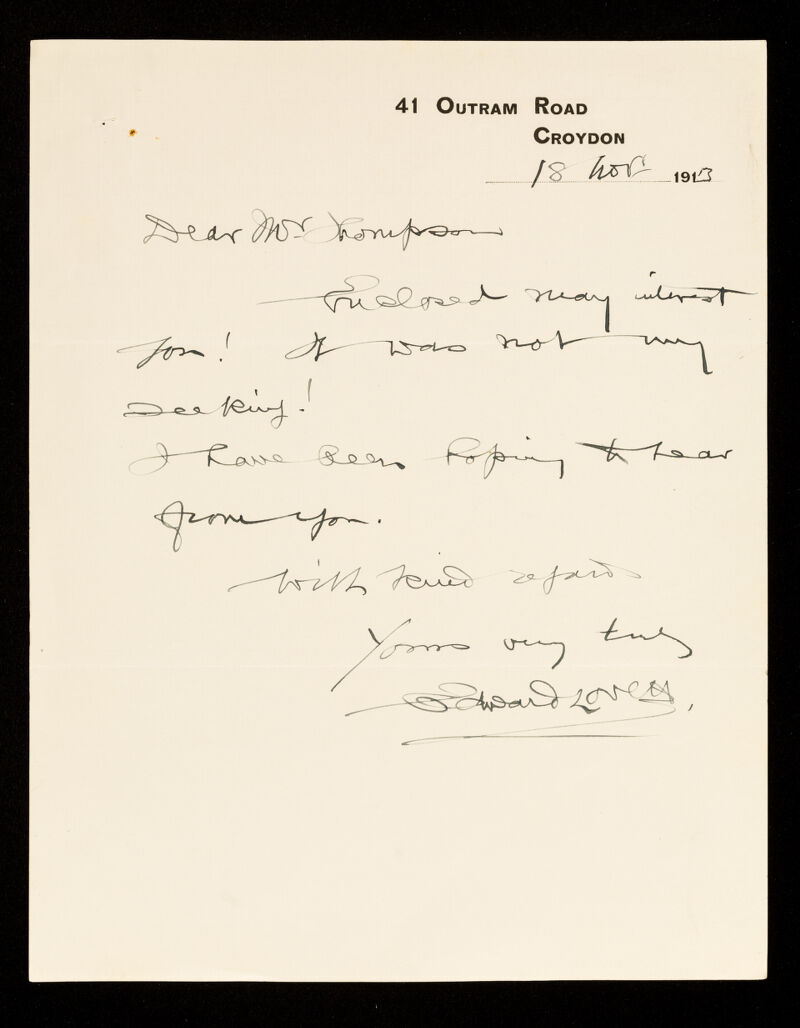 41 OUTRAM ROAD
CROYDON
18 Nov 1913
Dear Mr Thompson
Enclosed may interest
you! It was not my
seeking!
I have been hoping to hear
from you.
With kind regards
Yours very truly
Edward Lovett,